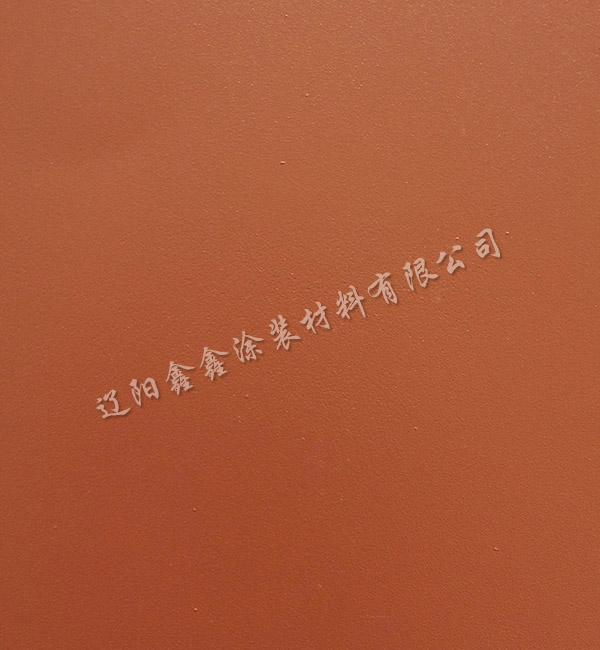 辽阳鑫鑫涂装材料有限公司